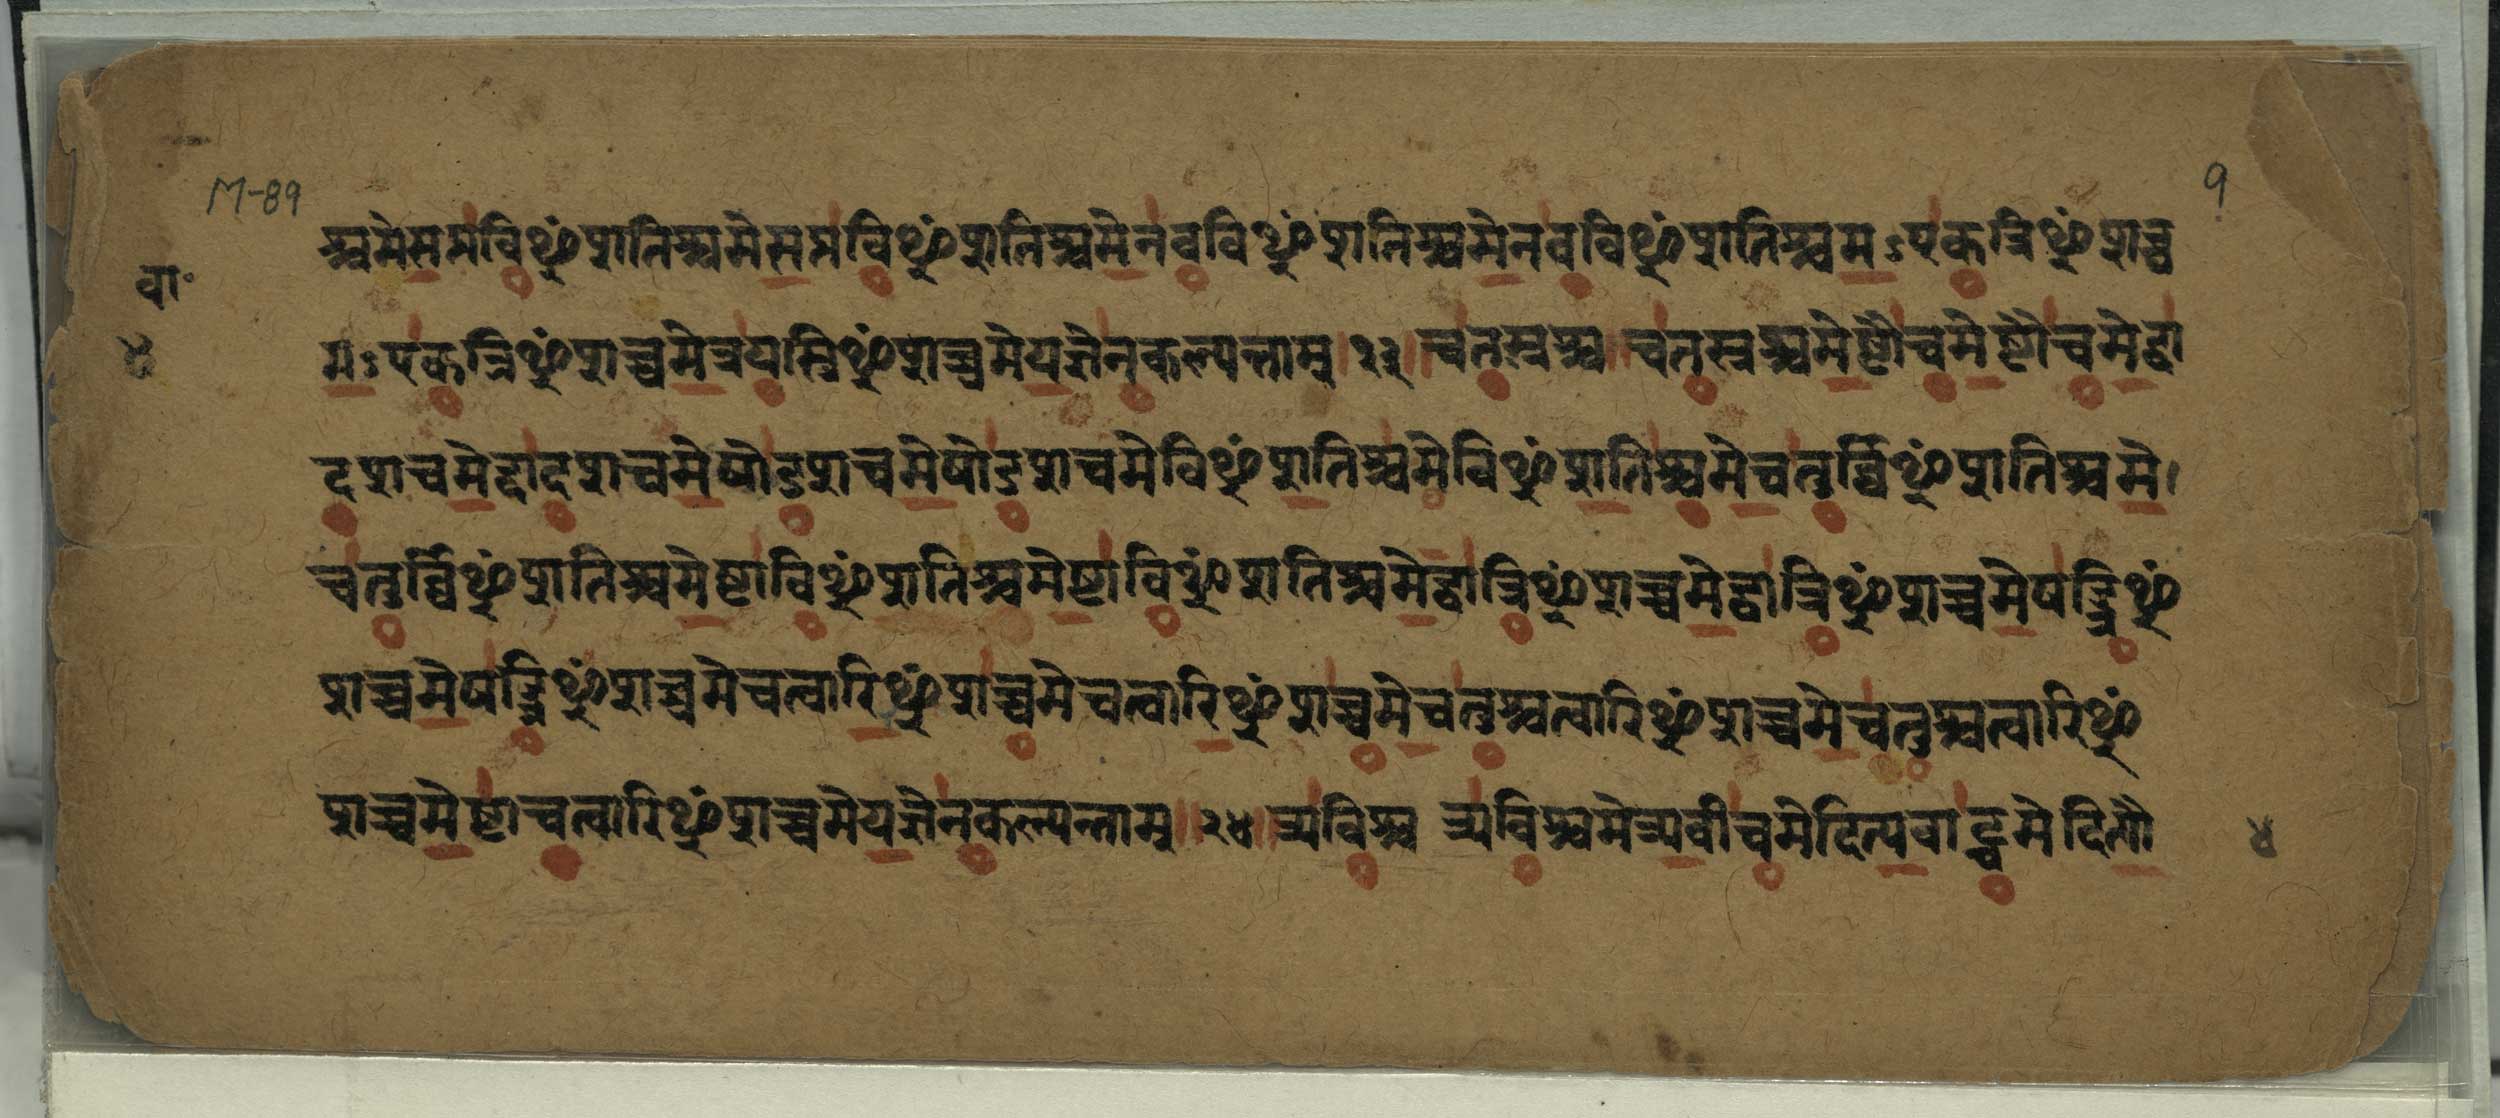 M-89
9
श्चमेसप्तविꣳशतिश्चमेसप्तविꣳशतिश्चमेनवविꣳशतिश्चमेनवविꣳशतिश्चमऽएकत्रिꣳशच्च
वा॰
४
मऽएकत्रिꣳशच्चमेत्रयस्त्रिꣳशच्चमेयज्ञेनकल्पन्ताम् ॥२३॥ चतस्रश्च ॥ चतस्रश्चमेष्टौचमेष्टौचमेद्वा
दशचमेद्वादशचमेषोडशचमेषोडशचमेविꣳशतिश्चमेविꣳशतिश्चमेचतुर्व्विꣳशतिश्चमे।
चतुर्व्विꣳशतिश्चमेष्टाविꣳशतिश्चमेष्टाविꣳशतिश्चमेद्वात्रिꣳशच्चमेद्वात्रिꣳशच्चमेषट्त्रिꣳ
शच्चमेषट्त्रिꣳशच्चमेचत्वारिꣳशच्चमेचत्वारिꣳशच्चमेचतुश्चत्वारिꣳशच्चमेचतुश्चत्वारिꣳ
शच्चमेष्टाचत्वारिꣳशच्चमेयज्ञेनकल्पन्ताम् ॥२४॥ त्र्यविश्च त्र्यविश्चमेत्र्यवीचमेदित्यवाट्चमेदित्यौ
४